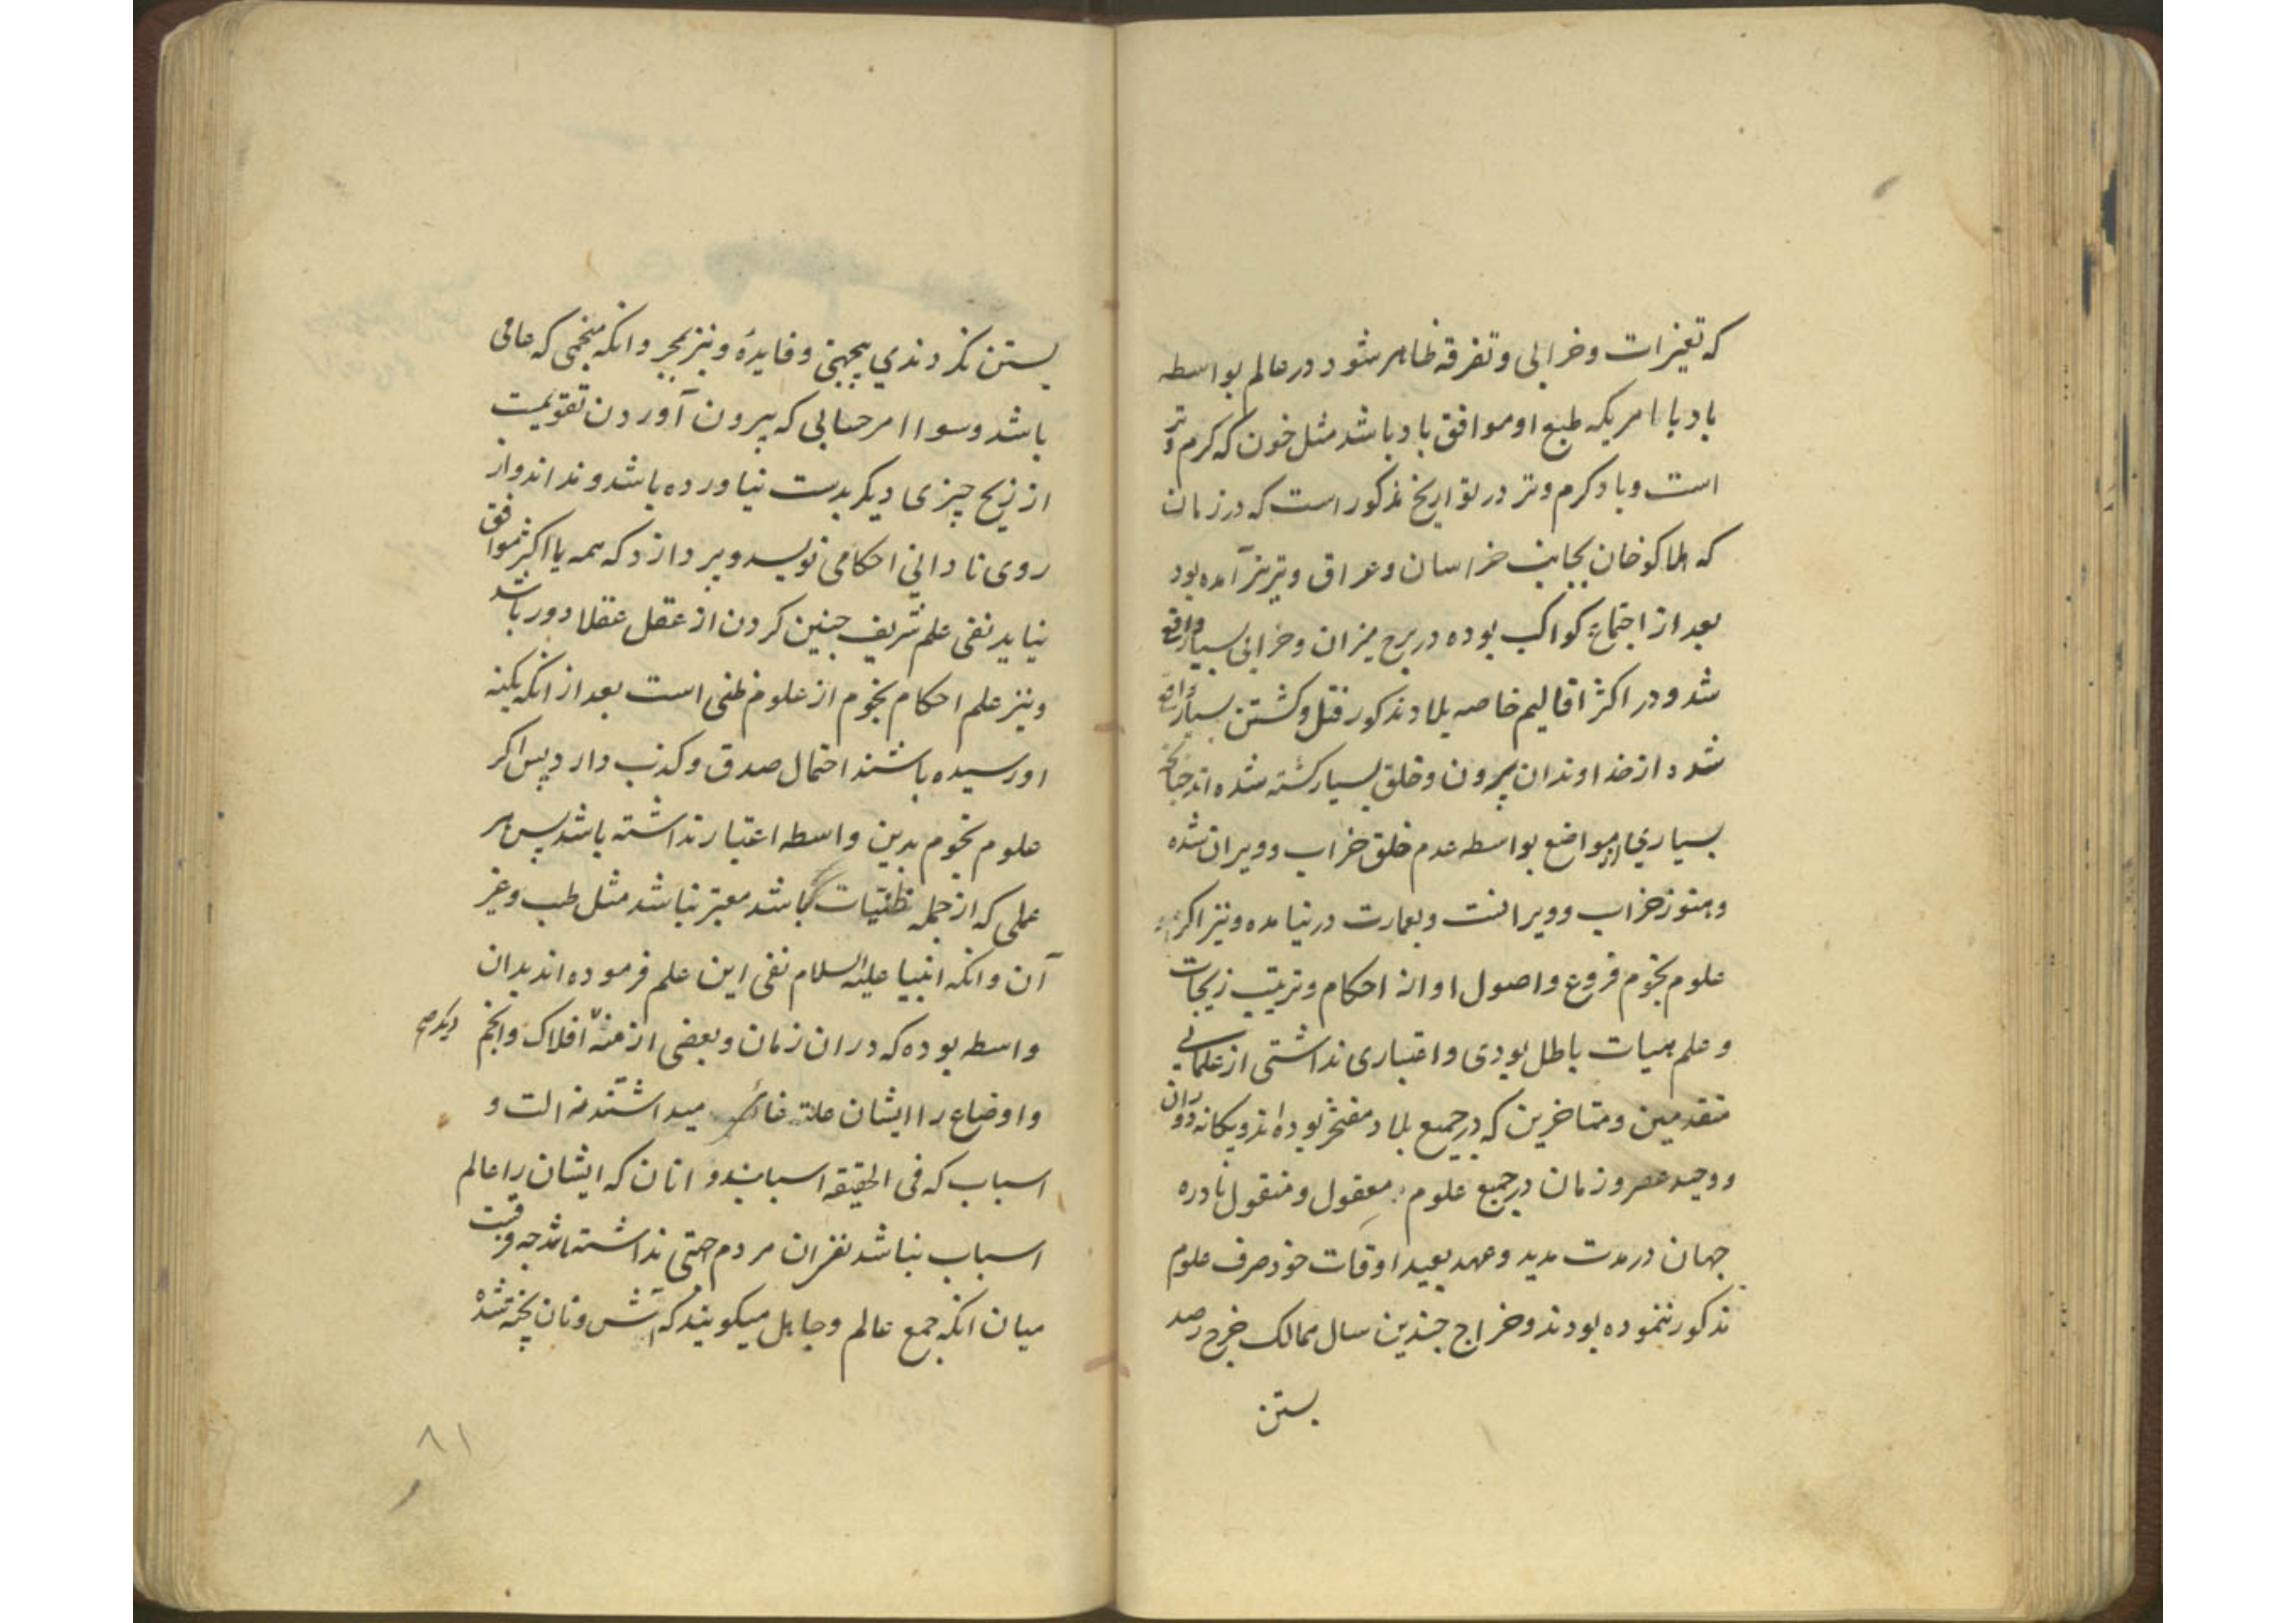 که تغیرات و خرابی و تفرقه ظاهر شود در عالم بواسطه
باد یا امریکه طبع او موافق باد باشد مثل خون که کرم و تر
است و باد کرم و تر در تواریخ مذکور است که در زمان
که هلاکو خان بجانب خراسان و عراق و تبریز آمده بود
بعد از اجتماع کواکب بوده در برج میزان و خرابی بسیار واقع
شد و در اکثر اقالیم خاصه بلاد مذکور قتل و کشتن بسیار واقع
شد و از خداوندان بیرون و خلق بسیار کشته شده اند چنانکه
بسیاری از مواضع بواسطه عدم خلق خراب و ویران شده
و هنوز خراب و ویرانست و بعمارت در نیامده و نیز اکر
علوم نجوم فروع و اصول او از احکام و ترتیب زیجات
و علم هیات باطل بودی و اعتباری نداشتی از علمائی
متقدمین و متاخرین که در جمیع بلاد مفتخر بوده اند و یکانه دوران
و وحید عصر و زمان در جمیع علوم معقول و منقول نادره
جهان در مدت مدید و عهد بعید اوقات خود صرف علوم
مذکور ننموده بودند و خراج چندین سال ممالک خرج رصد
بستن
بستن نکردندی بیجهتی و فایدهٔ و نیز بمجرد انکه منجمی که عامی
باشد و سوا امر حسابی که بیرون آوردن تقویمست
از زیج چیزی دیکر بدست نیاورده باشد و نداند و از
روی نادانی احکامی نویسد و پردازد که همه یا اکثر موافق
نیاید نفی علم شریف چنین کردن از عقل عقلا دور باشد
و نیز علم احکام نجوم از علوم ظنی است بعد از انکه بکنه
او رسیده باشند احتمال صدق و کذب دارد پس اکر
علوم نجوم بدین واسطه اعتبار نداشته باشد پس هر
علمی که از جمله ظنّیات باشد معتبر نباشد مثل طب و غیر
آن و انکه انبیا علیه السلام نفی این علم فرموده اند بدان
واسطه بوده که در ان زمان و بعضی ازمنهٔ افلاک و انجم
دیکر صح
و اوضاع را ایشان علت میداشتند نه الت و
اسباب که فی الحقیقه اسبابند و انان که ایشان را عالم
اسباب نباشد نفران مردم حتی نداشته باشد چه وقتیست
میان انکه جمع عالم و جاهل میکویند که آتش و نان پخته شده
۸۱